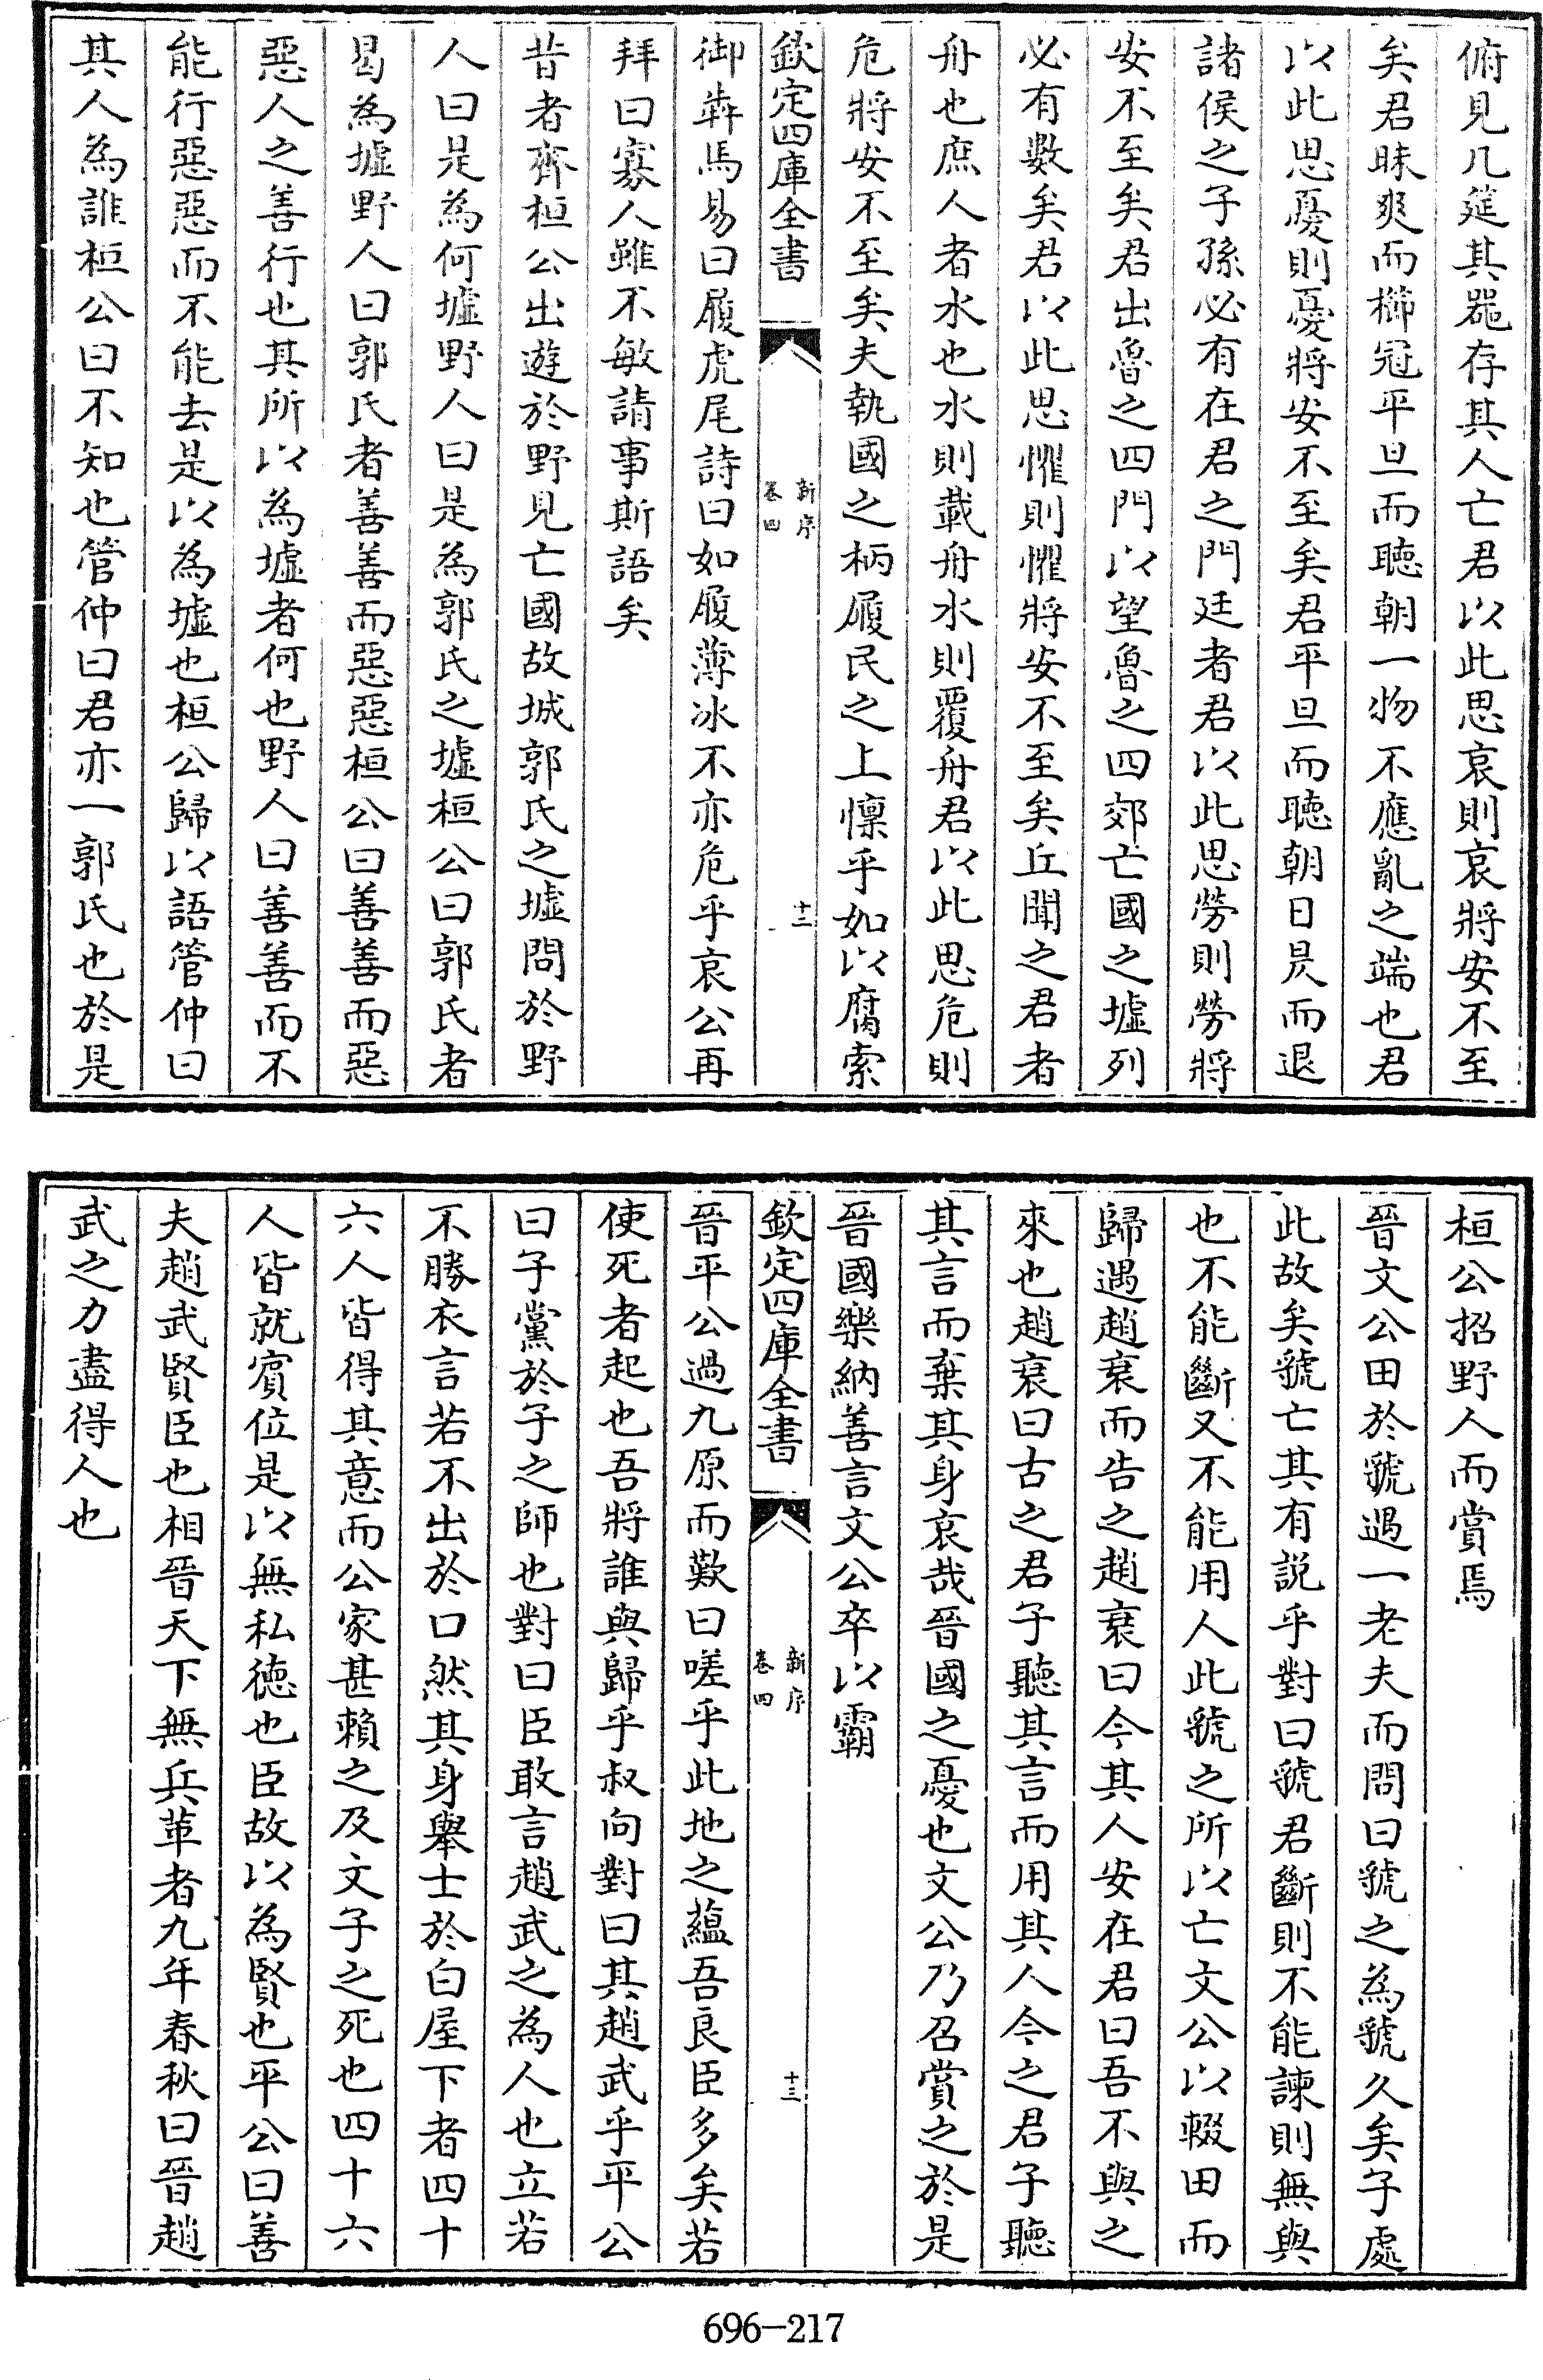 俯見几筵其器存其人亡君以此思哀則哀將安不至
矣君昧爽而櫛冠平旦而聽朝一物不應亂之端也君
以此思憂則憂將安不至矣君平旦而聽朝日昃而退
諸侯之子孫必有在君之門廷者君以此思勞則勞將
安不至矣君出魯之四門以望魯之四郊亡國之墟列
必有數矣君以此思懼則懼將安不至矣丘聞之君者
舟也庶人者水也水則載舟水則覆舟君以此思危則
危將安不至矣夫執國之柄履民之上懍乎如以腐索
欽定四庫全書
新序
卷四
十二
御犇馬易曰履虎尾詩曰如履薄冰不亦危乎哀公再
拜曰寡人雖不敏請事斯語矣
昔者齊桓公出遊於野見亡國故城郭氏之墟問於野
人曰是為何墟野人曰是為郭氏之墟桓公曰郭氏者
曷為墟野人曰郭氏者善善而惡惡桓公曰善善而惡
惡人之善行也其所以為墟者何也野人曰善善而不
能行惡惡而不能去是以為墟也桓公歸以語管仲曰
其人為誰桓公曰不知也管仲曰君亦一郭氏也於是
桓公招野人而賞焉
晉文公田於虢遇一老夫而問曰虢之為虢久矣子處
此故矣虢亡其有説乎對曰虢君斷則不能諫則無與
也不能斷又不能用人此虢之所以亡文公以輟田而
歸遇趙衰而告之趙衰曰今其人安在君曰吾不與之
來也趙衰曰古之君子聽其言而用其人今之君子聽
其言而棄其身哀哉晉國之憂也文公乃召賞之於是
晉國樂納善言文公卒以霸
欽定四庫全書
新序
卷四
十三
晉平公過九原而歎曰嗟乎此地之蘊吾良臣多矣若
使死者起也吾將誰與歸乎叔向對曰其趙武乎平公
曰子黨於子之師也對曰臣敢言趙武之為人也立若
不勝衣言若不出於口然其身舉士於白屋下者四十
六人皆得其意而公家甚賴之及文子之死也四十六
人皆就賓位是以無私德也臣故以為賢也平公曰善
夫趙武賢臣也相晉天下無兵革者九年春秋曰晉趙
武之力盡得人也
696-217